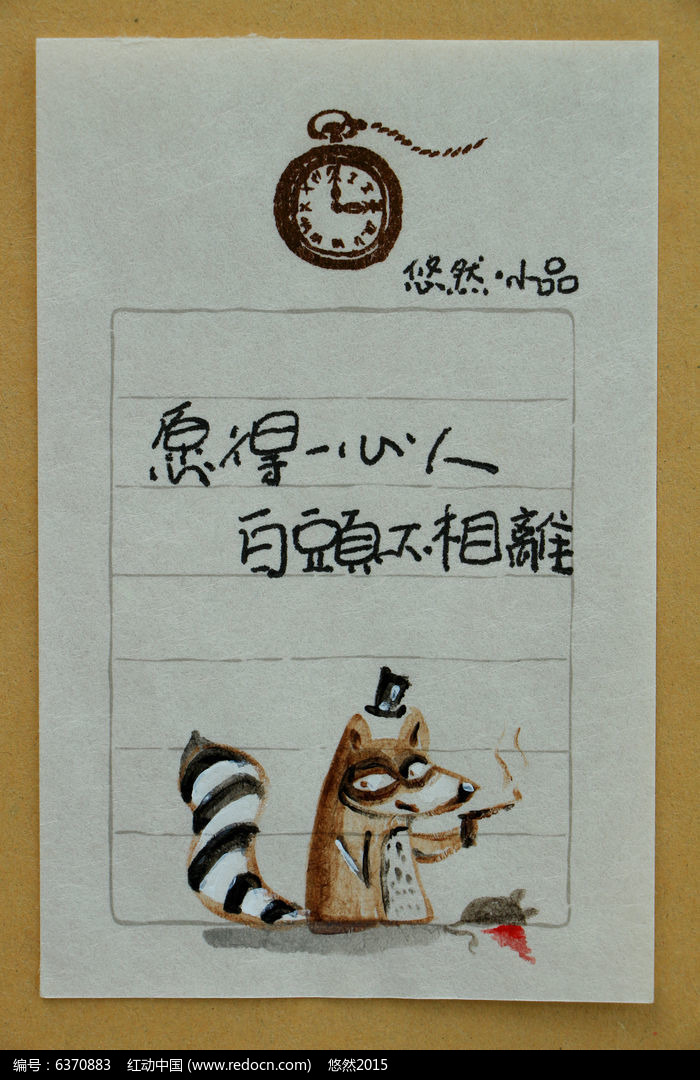 悠然·小品
愿得一心人
白頭不相離
编号：6370883 红动中国 (www.redocn.com) 悠然2015